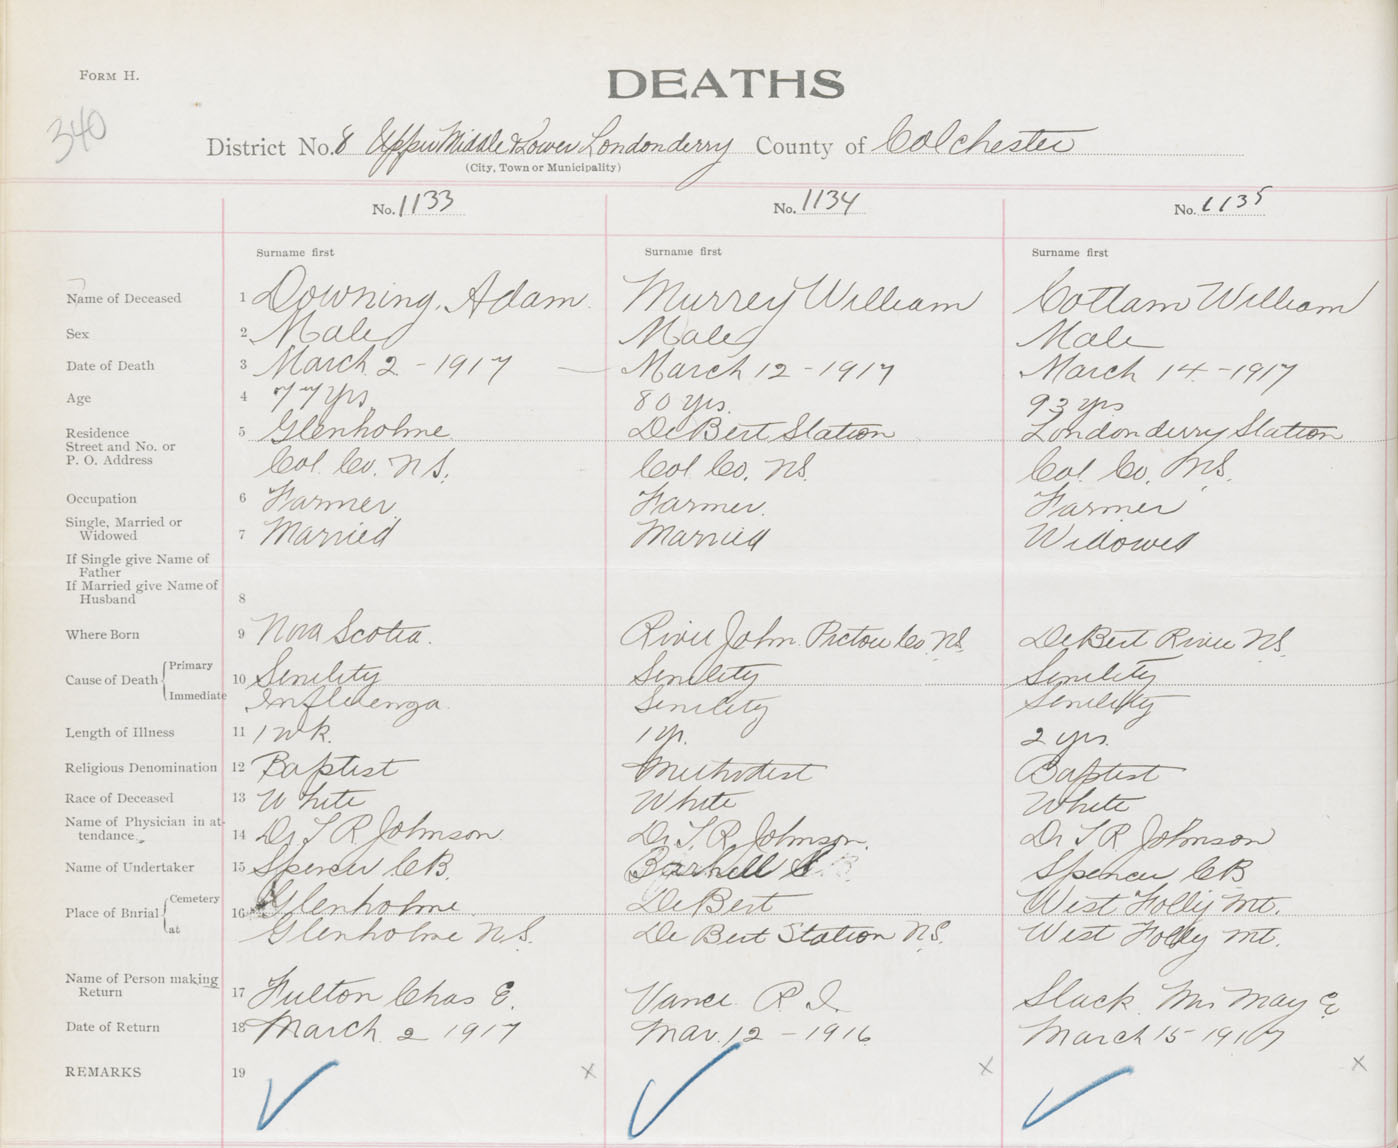 FORM H.
DEATHS
340
District No. 8 Upper Middle & Lower Londonderry County of Colchester
(City, Town or Municipality)
No. 1133 No. 1134 No. 1135
Surname first Surname first Surname first
Name of Deceased 1 Downing, Adam Murrey William Cottam William
Sex 2 Male Male Male
Date of Death 3 March 2 - 1917 March 12 - 1917 March 14 - 1917
Age 4 77 yrs 80 yrs. 93 yrs
Residence 5 Glenholme DeBert Station Londonderry Station
Street and No. or
P. O. Address Col. Co. N.S. Col Co. N.S. Col. Co. N.S.
Occupation 6 Farmer Farmer Farmer
Single, Married or
Widowed 7 Married Married Widowed
If Single give Name of
Father
If Married give Name of
Husband 8
Where Born 9 Nova Scotia. River John Pictou Co. N.S. DeBert River N.S.
Cause of Death Primary 10 Senility Senility Senility
Immediate Influenza Senility Senility
Length of Illness 11 1 wk. 1 yr. 2 yrs.
Religious Denomination 12 Baptist Methodist Baptist
Race of Deceased 13 White White White
Name of Physician in at-
tendance 14 Dr T R Johnson Dr. T. R. Johnson. Dr T R Johnson
Name of Undertaker 15 Spencer C B. Spencer C B
Place of Burial Cemetery 16 Glenholme DeBert West Folly Mt.
at Glenholme N.S. De Bert Station N.S. West Folly Mt.
Name of Person making
Return 17 Fulton Chas E. Vance R. I. Slack. Mrs May E
Date of Return 18 March 2 1917 Mar. 12 - 1916 March 15 - 1917
REMARKS 19 x x x